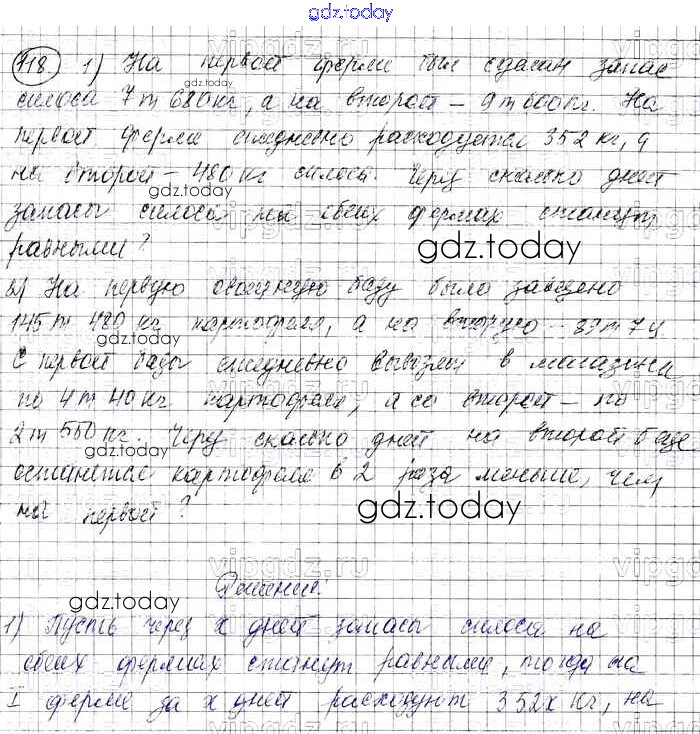 gdz.today
718. 1) На первой ферме был сделан запас
силоса 7 т 680 кг, а на второй – 9 т 600 кг. На
первой ферме ежедневно расходуется 352 кг, а
на второй – 480 кг силоса. Через сколько дней
gdz.today
запасы силоса на обеих фермах станут
равными?
gdz.today
2) На первую овощную базу было завезено
145 т 480 кг картофеля, а на вторую – 89 т 7 ц.
gdz.today
С первой базы ежедневно вывозили в магазины
по 4 т 40 кг картофеля, а со второй – по
2 т 550 кг. Через сколько дней на второй базе
gdz.today
останется картофеля в 2 раза меньше, чем
на первой?
gdz.today
vipgdz.ru
Решение.
gdz.today
1) Пусть через x дней запасы силоса на
обеих фермах станут равными, тогда на
I ферме за x дней расходуют 352x кг, на
vipgdz.ru